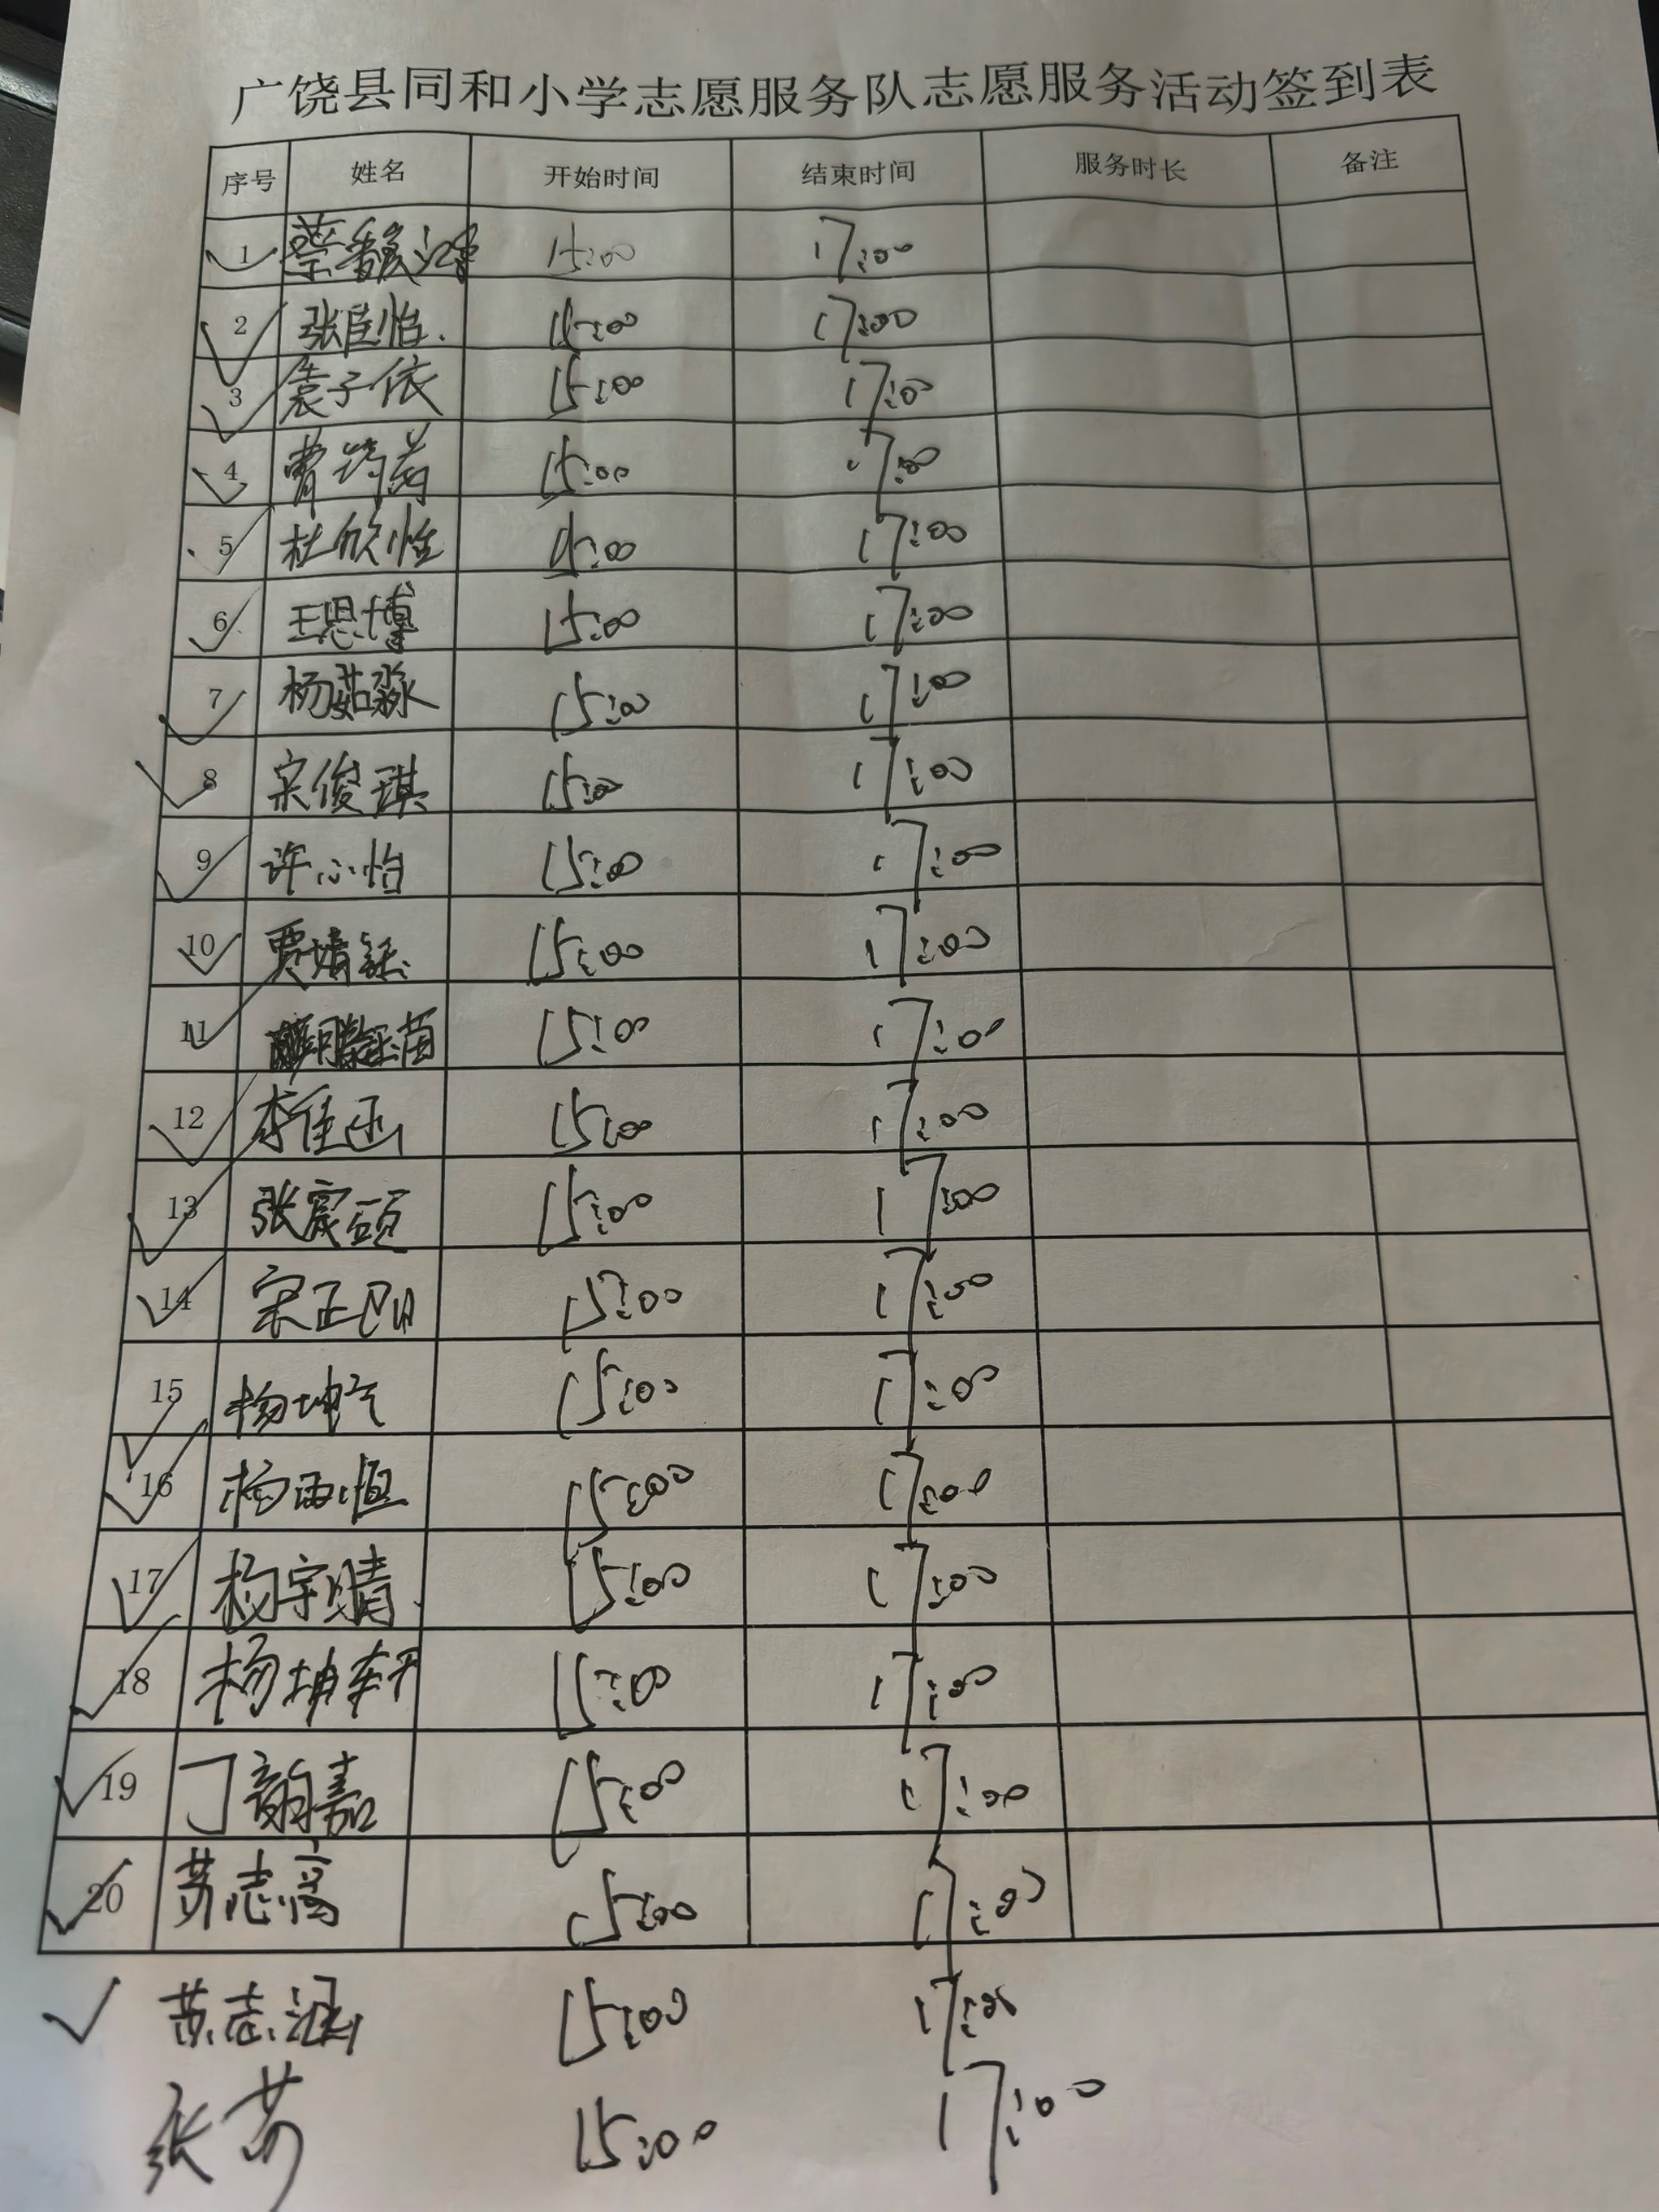 广饶县同和小学志愿服务队志愿服务活动签到表
序号 姓名 开始时间 结束时间 服务时长 备注
1 15:00 17:00
2 张臣怡 15:00 17:00
3 袁子依 15:00 17:00
4 15:00 17:00
5 杜欣怡 15:00 17:00
6 王思博 15:00 17:00
7 杨茹淼 15:00 17:00
8 宋俊琪 15:00 17:00
9 许心怡 15:00 17:00
10 贾婧 15:00 17:00
11 15:00 17:00
12 李佳函 15:00 17:00
13 张宸硕 15:00 17:00
14 宋正阳 15:00 17:00
15 杨坤 15:00 17:00
16 杨雨恒 15:00 17:00
17 杨宇晴 15:00 17:00
18 杨坤轩 15:00 17:00
19 丁韵嘉 15:00 17:00
20 黄志高 15:00 17:00
黄志涵 15:00 17:00
张 15:00 17:00